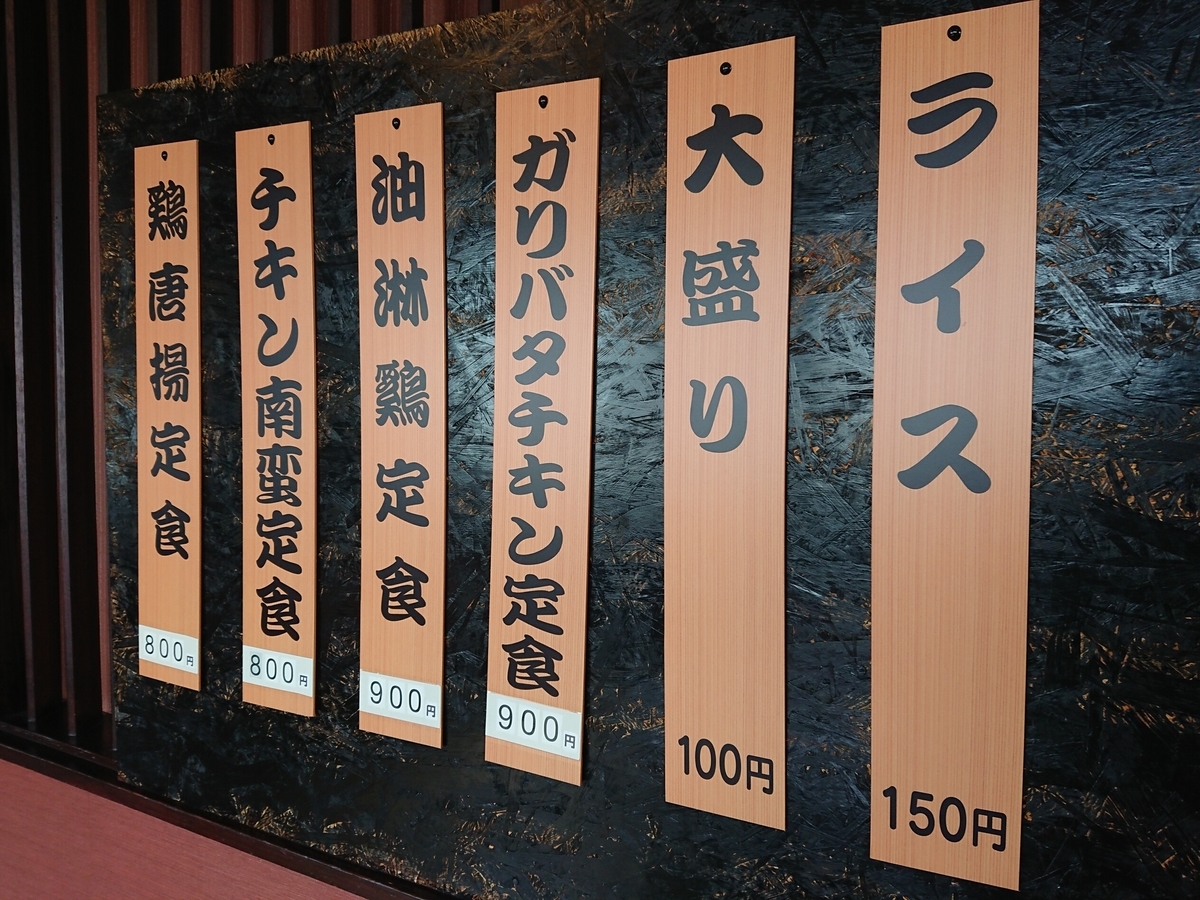 ライス
150円
大盛り
100円
ガリバタチキン定食
900円
油淋鷄定食
900円
チキン南蛮定食
800円
鶏唐揚定食
800円